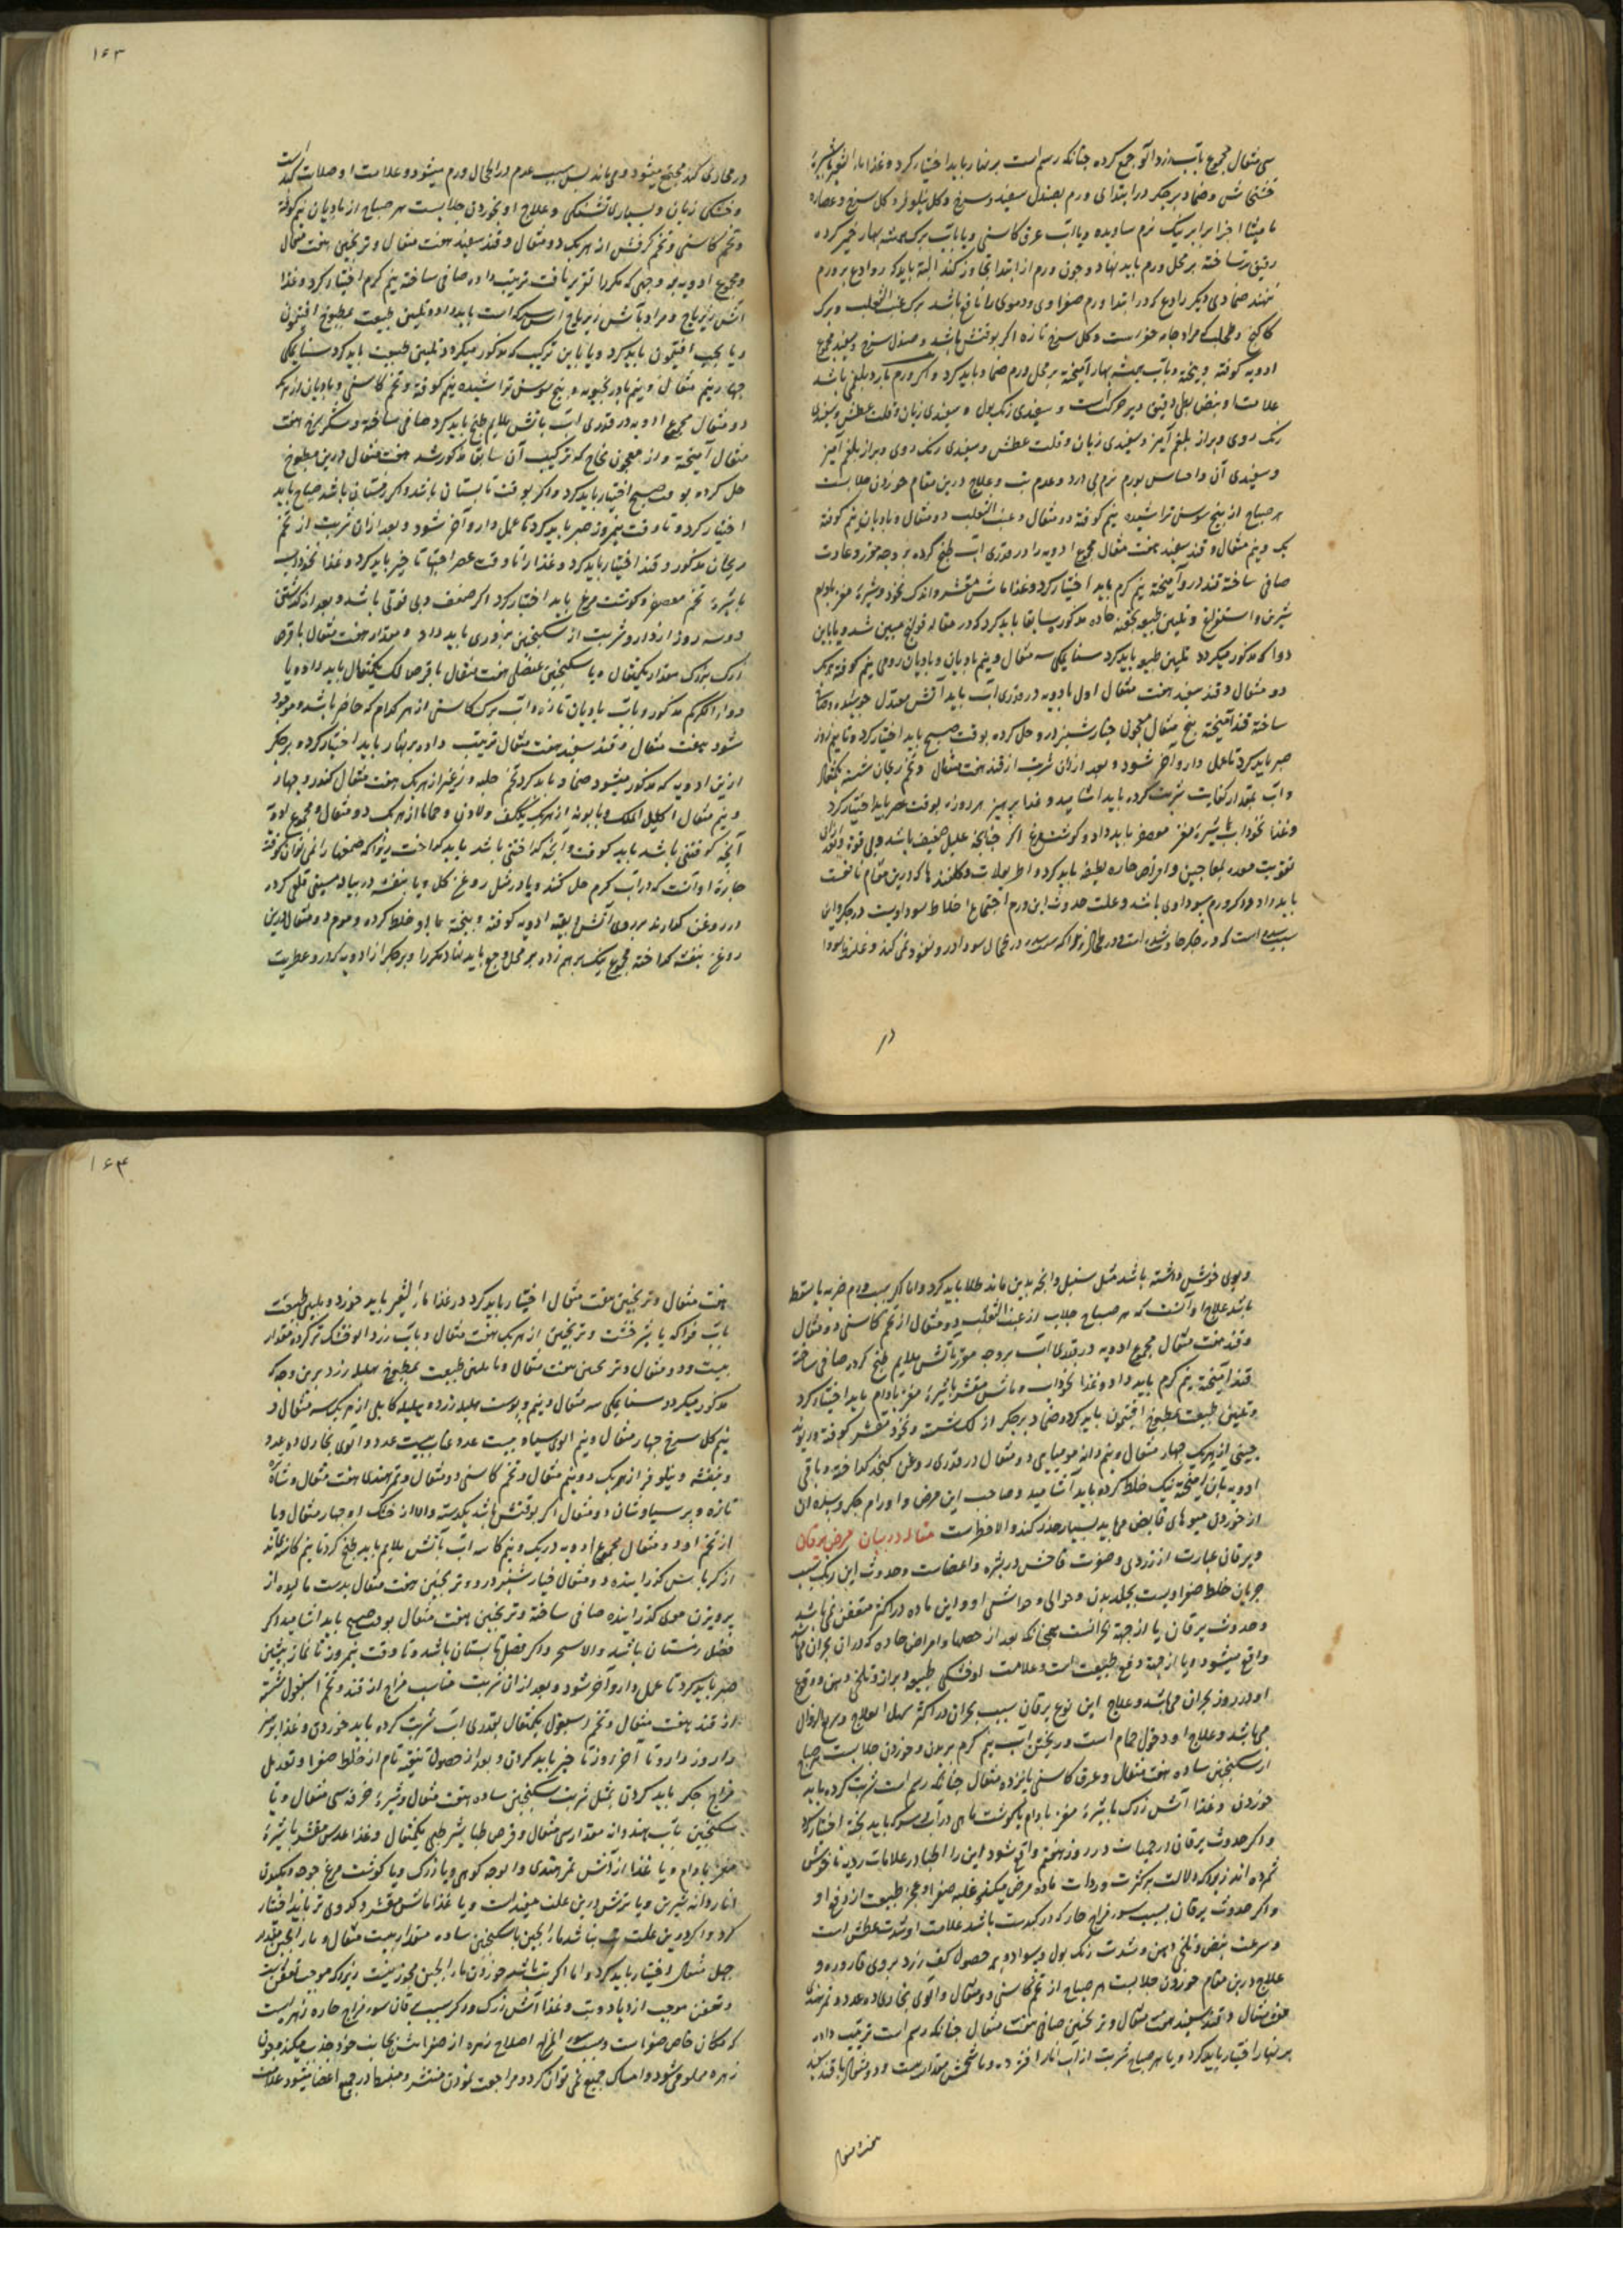 سی مثقال مجموع بآب زردآلو جمع کرده چنانکه رسم است بر نهار باید اختیار کرد و غذا ماء الشعیر با شیرهٔ
خشخاش و ضماد بر جکر در ابتدای ورم بصندل سفید و سرخ و کل نیلوفر و کل سرخ و عصاره
مامیثا اجزا برابر نیک نرم ساویده و بآب عرق کاسنی و یا بآب برک همیشه بهار خمیر کرده
رقیق تر ساخته بر محل ورم باید نهاد و چون ورم از ابتدا تجاوز کند البته باید که روادع بر ورم
ننهند ضمادی دیکر رادع که در ابتدا ورم صفراوی و دموی را نافع باشد برک عنب الثعلب و برک
کاکنج و طحلب که مراد جامه غوک است و کل سرخ تازه اکر بوقتش باشد و صندل سرخ و سفید مجموع
ادویه کوفته و بیخته و بآب همیشه بهار آمیخته بر محل ورم ضماد باید کرد و اکر ورم بارد بلغمی باشد
علامت او نبض بطی دقیق دیر حرکت است و سفیدی رنک بول و سفیدی زبان و قلت عطش و سفیدی
رنک روی و براز بلغم آمیز و سفیدی زبان و قلت عطش و سفیدی رنک روی و براز بلغم آمیز
و سفیدی آن و احساس بورم نرم بی درد و عدم تب و علاج درین مقام خوردن جلابست
هر صباح از بیخ سوسن تراشیده نیم کوفته دو مثقال و عنب الثعلب دو مثقال و بادیان نیم کوفته
یک و نیم مثقال و قند سفید هفت مثقال مجموع ادویه را در قدری آب طبخ کرده بر وجه مقرر و عادت
صافی ساخته قند در و آمیخته نیم کرم باید اختیار کرد و غذا ماش مقشر و اندک نخود و شیرهٔ مغز بادام
شیرین و استفراغ و تلیین طبع بحقنه حاده مذکور سابقا باید کرد که در مقاله قولنج مبین شد و یا باین
دوا که مذکور میکردد تلیین طبع باید کرد سنا مکی سه مثقال و نیم بادیان و بادیان رومی نیم کوفته هر یک
دو مثقال و قند سفید هفت مثقال اول ادویه در قدری آب باید آتش معتدل جوشیده و صاف
ساخته قند آمیخته پنج مثقال معجون خیارشنبر در و حل کرده بوقت صبح باید اختیار کرد و تا نیم روز
صبر باید کرد تا عمل دارو آخر شود و بعد از آن شربت از قند هفت مثقال و تخم ریحان شسته یکمثقال
و آب بمقدار کفایت شربت کرده باید آشامید و غذا پرهیز هر روزه بوقت عصر باید اختیار کرد
و غذا نخوداب با شیرهٔ مغز معصفر باید داد و کوشت مرغ اکر چنانچه علیل ضعیف باشد و بی قوة و توان
تقویت معده بمعاجین و اقراص حاره لطیفه باید کرد و اطریفلات و کلقندها که درین مقام نافعست
باید داد و اکر ورم سوداوی باشد و علت حدوث این ورم اجتماع اخلاط سوداویست در جکر و این
سبب سده است که در جکر حادث شده است و در طحال زیرا که سده در طحال سودا در و نفوذ نمی کند و غلیظ سودا
در
۱۶۳
در مجاری کبد مجتمع میشود و می ماند پس سبب عدم در طحال ورم میشود و علامت او صلابت کبد است
و خشکی زبان و بسیاری تشنکی و علاج او خوردن جلابست هر صباح از بادیان نیم کوفته
و تخم کاسنی و تخم کرفس از هر یک دو مثقال و قند سفید هفت مثقال و ترنجبین هفت مثقال
و مجموع ادویه بر وجهی که مکررا تقریر یافت ترتیب داده صافی ساخته نیم کرم اختیار کرد و غذا
آش زیرباج و مراد بآش زیرباج آش سرکه است باید داد و تلیین طبیعت بمطبوخ افتیمون
و یا بحب افتیمون باید کرد و یا باین ترکیب که مذکور میکردد تلیین طبیعت باید کرد سنا مکی
چهار و نیم مثقال و نیم بادرنجبویه و بیخ سوسن تراشیده نیم کوفته و تخم کاسنی و بادیان از هر یک
دو مثقال مجموع ادویه در قدری آب بآتش ملایم طبخ باید کرد صافی ساخته و شکر سرخ هفت
مثقال آمیخته و از معجون نجاح که ترکیب آن سابقا مذکور شد هفت مثقال درین مطبوخ
حل کرده بوقت صبح اختیار باید کرد و اکر بوقت تابستان باشد و اکر زمستان باشد صباح باید
اختیار کرد و تا وقت نیمروز صبر باید کرد تا عمل دارو آخر شود و بعد از آن شربت از تخم
ریحان مذکور و قند اختیار باید کرد و غذا را تا وقت عصر احتیاطا خیر باید کرد و غذا نخوداب
با شیرهٔ تخم معصفر و کوشت مرغ باید اختیار کرد اکر ضعف و بی قوتی باشد و بعد از کذشتن
دو سه روز از دارو شربت از سکنجبین بزوری باید داد و مقدار هفت مثقال با قرص
زرک بزرک مقدار یکمثقال و یا سکنجبین عنصلی هفت مثقال با قرص لک یکمثقال باید داد و یا
دواء الکرکم مذکور و بآب بادیان تازه و آب برک کاسنی از هر کدام که حاضر باشد و موجود
شود هفت مثقال و قند سفید هفت مثقال ترتیب داده بر نهار باید اختیار کرد و بر جکر
ازین ادویه که مذکور میشود ضماد باید کرد تخم حلبه و زعیر از هر یک هفت مثقال کندر و چهار
و نیم مثقال اکلیل الملک و بابونه از هر یک یک کف و لادن و حماما از هر یک دو مثقال و مجموع ادویه
آنچه کوفتنی باشد باید کوفت و آنچه کداختنی باشد باید کداخت زیرا که صمغها را نمی توان کوفت
چاره او آنست که در آب کرم حل کنند و یا در مثل روغن کل و یا بنفشه در پیاله مسینی قلعی کرده
در روغن کذارند بر روی آتش و بقیه ادویه کوفته و بیخته با او خلط کرده و موم دو مثقال درین
روغن بنفشه کداخته مجموع نیک بر هم زده بر محل وجع باید نهاد مکررا و بر جکر از ادویه که در و عطریت
و بوی خوش داشته باشد مثل سنبل و آنچه بدین ماند طلا باید کرد و اما اکر سبب ورم ضربه یا سقطه
باشد علاج او آنست که هر صباح جلاب از عنب الثعلب دو مثقال از تخم کاسنی دو مثقال
و قند هفت مثقال مجموع ادویه در قدری آب بر وجه مقرر بآتش ملایم طبخ کرده صافی ساخته
قند آمیخته نیم کرم باید داد و غذا نخوداب و ماش مقشر با شیرهٔ مغز بادام باید اختیار کرد
و تلیین طبیعت بمطبوخ افتیمون باید کرد و ضماد بر جکر از لک شسته و نخود مقشر کوفته و ریوند
چینی از هر یک چهار مثقال و نیم دانه مومیایی دو مثقال در قدری روغن کنجد کداخته و باقی
ادویه بآن آمیخته نیک خلط کرده باید آشامید و صاحب این مرض و اورام جکر و سده آن
از خوردن میوهای قابض می باید بسیار حذر کند و الا خطرست مقاله در بیان مرض یرقان
و یرقان عبارت از زردی و صفرت فاحش در بشره و اعضاست و حدوث این رنک بسبب
جریان خلط صفراویست بجلد بدن و حوالی و حواشی او و این ماده در اکثر متعفن نمی باشد
و حدوث یرقان یا از جهة بحرانست همچنانکه بعد از حمیها و امراض حاده که در آن بحران
واقع میشود و یا از جهة دفع طبیعت است و علامت او خشکی طبع و براز و تلخی دهن و وقوع
او در روز بحران می باشد و علاج این نوع یرقان بسبب بحران در اکثر سهل العلاج و سریع الزوال
می باشد و علاج او دخول حمام است و ریختن آب نیم کرم بر بدن و خوردن جلابست هر صباح
از سکنجبین ساده هفت مثقال و عرق کاسنی پانزده مثقال چنانکه رسم است شربت کرده باید
خوردن و غذا آش زرک با شیرهٔ مغز بادام یا کوشت ماهی در آب سرکه باید پخته اختیار کرد
و اکر حدوث یرقان در حمیات در روز هفتم واقع شود این را اطبا در علامات ردیه ناخوش
شمرده اند زیرا که دلالت بر کثرت و رداءت ماده مرض میکند و غلبه صفرا و عجز طبیعت از دفع او
و اکر حدوث یرقان بسبب سوء مزاج حار که در کبدست باشد علامت او شدت عطش است
و سرعت نبض و تلخی دهن و شدت رنک بول و بسواد و بر حصول کف زرد بر روی قاروره و
علاج درین مقام خوردن جلابست هر صباح از تخم کاسنی دو مثقال و آلوی بخارا ده عدد و تمر هندی
هفت مثقال و قند سفید هفت مثقال و ترنجبین صافی هفت مثقال چنانکه رسم است ترتیب داده
بر نهار اختیار باید کرد و یا هر صباح شربت از آب انار افشرده و با شحمش بمقدار بیست و دو مثقال با قند سفید
هفت مثقال
۱۶۴
هفت مثقال و ترنجبین هفت مثقال اختیار باید کرد در غذا ماء الشعیر باید خورد و تلیین طبیعت
بآب فواکه با شیرخشت و ترنجبین از هر یک هفت مثقال و بآب زردآلو خشک تر کرده مقدار
بیست و دو مثقال و ترنجبین هفت مثقال و یا تلیین طبیعت بمطبوخ هلیله زرد برین وجه که
مذکور میکردد سنا مکی سه مثقال و نیم و پوست هلیله زرد و هلیله کابلی از هر یک سه مثقال و
نیم کل سرخ چهار مثقال و نیم آلوی سیاه بیست عدد عناب بیست عدد و آلوی بخارای ده عدد
و بنفشه و نیلوفر از هر یک دو و نیم مثقال و تخم کاسنی دو مثقال و تمر هندی هفت مثقال و شاهتره
تازه و پرسیاوشان دو مثقال اکر بوقتش باشد یکدسته و الا از خشک او چهار مثقال و یا
از تخم او دو مثقال مجموع ادویه در یک و نیم کاسه آب بآتش ملایم باید طبخ کرد تا نیم کاسه بماند
از کرباس کذرانیده دو مثقال خیارشنبر در و و ترنجبین هفت مثقال بدست مالیده از
پرویزن موی کذرانیده صافی ساخته و ترنجبین هفت مثقال بوقت صبح باید آشامید اکر
فصل زمستان باشد و الا سحر و اکر فصل تابستان باشد و تا وقت نیمروز تا نماز پیشین
صبر باید کرد تا عمل دارو آخر شود و بعد از آن شربت مناسب مزاج از قند و تخم اسبغول شسته
از قند هفت مثقال و تخم اسبغول یکمثقال بقدری آب شربت کرده باید خوردن و غذا پرهیز
دار و روز دارو تا آخر روز تاخیر باید کردن و بعد از حصول تنقیه تام از خلط صفرا و تعدیل
مزاج جکر باید کردن بمثل شربت سکنجبین ساده هفت مثقال و شیرهٔ خرفه سی مثقال و یا
سکنجبین بآب هندوانه مقدار سی مثقال و قرص طباشیر طبی یکمثقال و غذا عدس مقشر با شیرهٔ
مغز بادام و یا غذا از آش تمر هندی و آلوچه کوهی و یا زرک و یا کوشت مرغ جوجه و نیکوی
اناردانه شیرین و یا ترش درین علت مفیدست و یا غذا ماش مقشر و کدوی تر باید اختیار
کرد و اکر درین علت تب نباشد ماء الجبن با سکنجبین ساده مقدار بیست مثقال و ماء الجبن بقدر
چهل مثقال اختیار باید کرد و اما اکر تب باشد خوردن ماء الجبن مجوز نیست زیرا که موجب تعفن است
و تعفن موجب ازدیاد و تب و غذا آش زرک و اکر سبب یرقان سوء مزاج حاره زهره است
که مکان خاص صفراست و بسبب سوء المزاج اصلاح زهره از صفرا بیش بجانب خود جذب میکند و چون
زهره مملو می شود و امساک جمیع نمی توان کرد و مراجعت نمودن منتشر و منبسط در جمیع اعضا میشود علامت